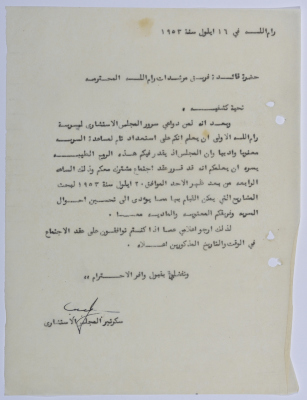 رام اللـــه في ١٦ ايلول سنة ١٩٥٣
حضرة قائـدة فريـق مرشـدات رام اللـه المحترمـه
تحية كشفيـه
وبعد انه لمن دواعي سرور المجلس الاستشاري لسرية
رام اللـه الاولى ان يعلم انكم على استعداد تام لمساعدة السريـه
معنويا وادبيا وان المجلس اذ يقدر فيكم هـذه الروح الطيبـه
يسره ان يعلمكم انه قد قرر عقد اجتماع مشترك معكم وذلك الساعه
الرابعه من بعد ظهر الاحد الموافق ٢٠ ايلول سنة ١٩٥٣ لبحث
المشاريع التي يمكن القيام بها مما يؤدي الى تحسيـن احـوال
السريه وفرقتكم المعنويـه والماديـه معـا
لذلك ارجو اعلامي عما اذا كنتـم توافقون على عقد الاجتماع
في الوقت والتاريخ المذكورين اعـلاه
وتفضلوا بقبول وافر الاحـتـرام
سكرتير المجلس الاستشاري